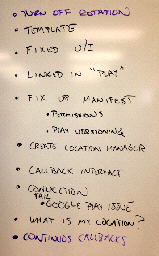 • TURN OFF ROTATION
• TEMPLATE
• FIXED U/I
• LINKED IN "PLAY"
• FIX UP MANIFEST
• PERMISSIONS
• PLAY VERSIONING
• CREATE LOCATION MANAGER
• CALLBACK INTERFACE
• CONNECTION
FAIL
• GOOGLE PLAY ISSUE
• WHAT IS MY LOCATION?
• CONTINUOS CALLBACKS